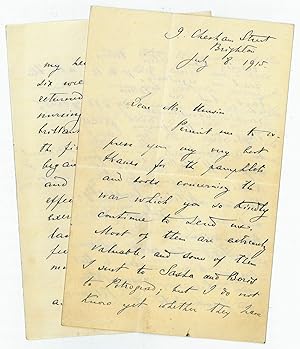 9 Chesham Street
Brighton
July 8. 1915
Dear Mr.
Permit me to ex-
press you my very best
thanks for the pamphlets
and books concerning the
war which you so kindly
continue to send me.
Most of them are extremely
valuable, and some of them
I sent to Sasha and Boris
to Petrograd; but I do not
know yet whether they have
my
six
returned
nursing
brilliant
the
began
and